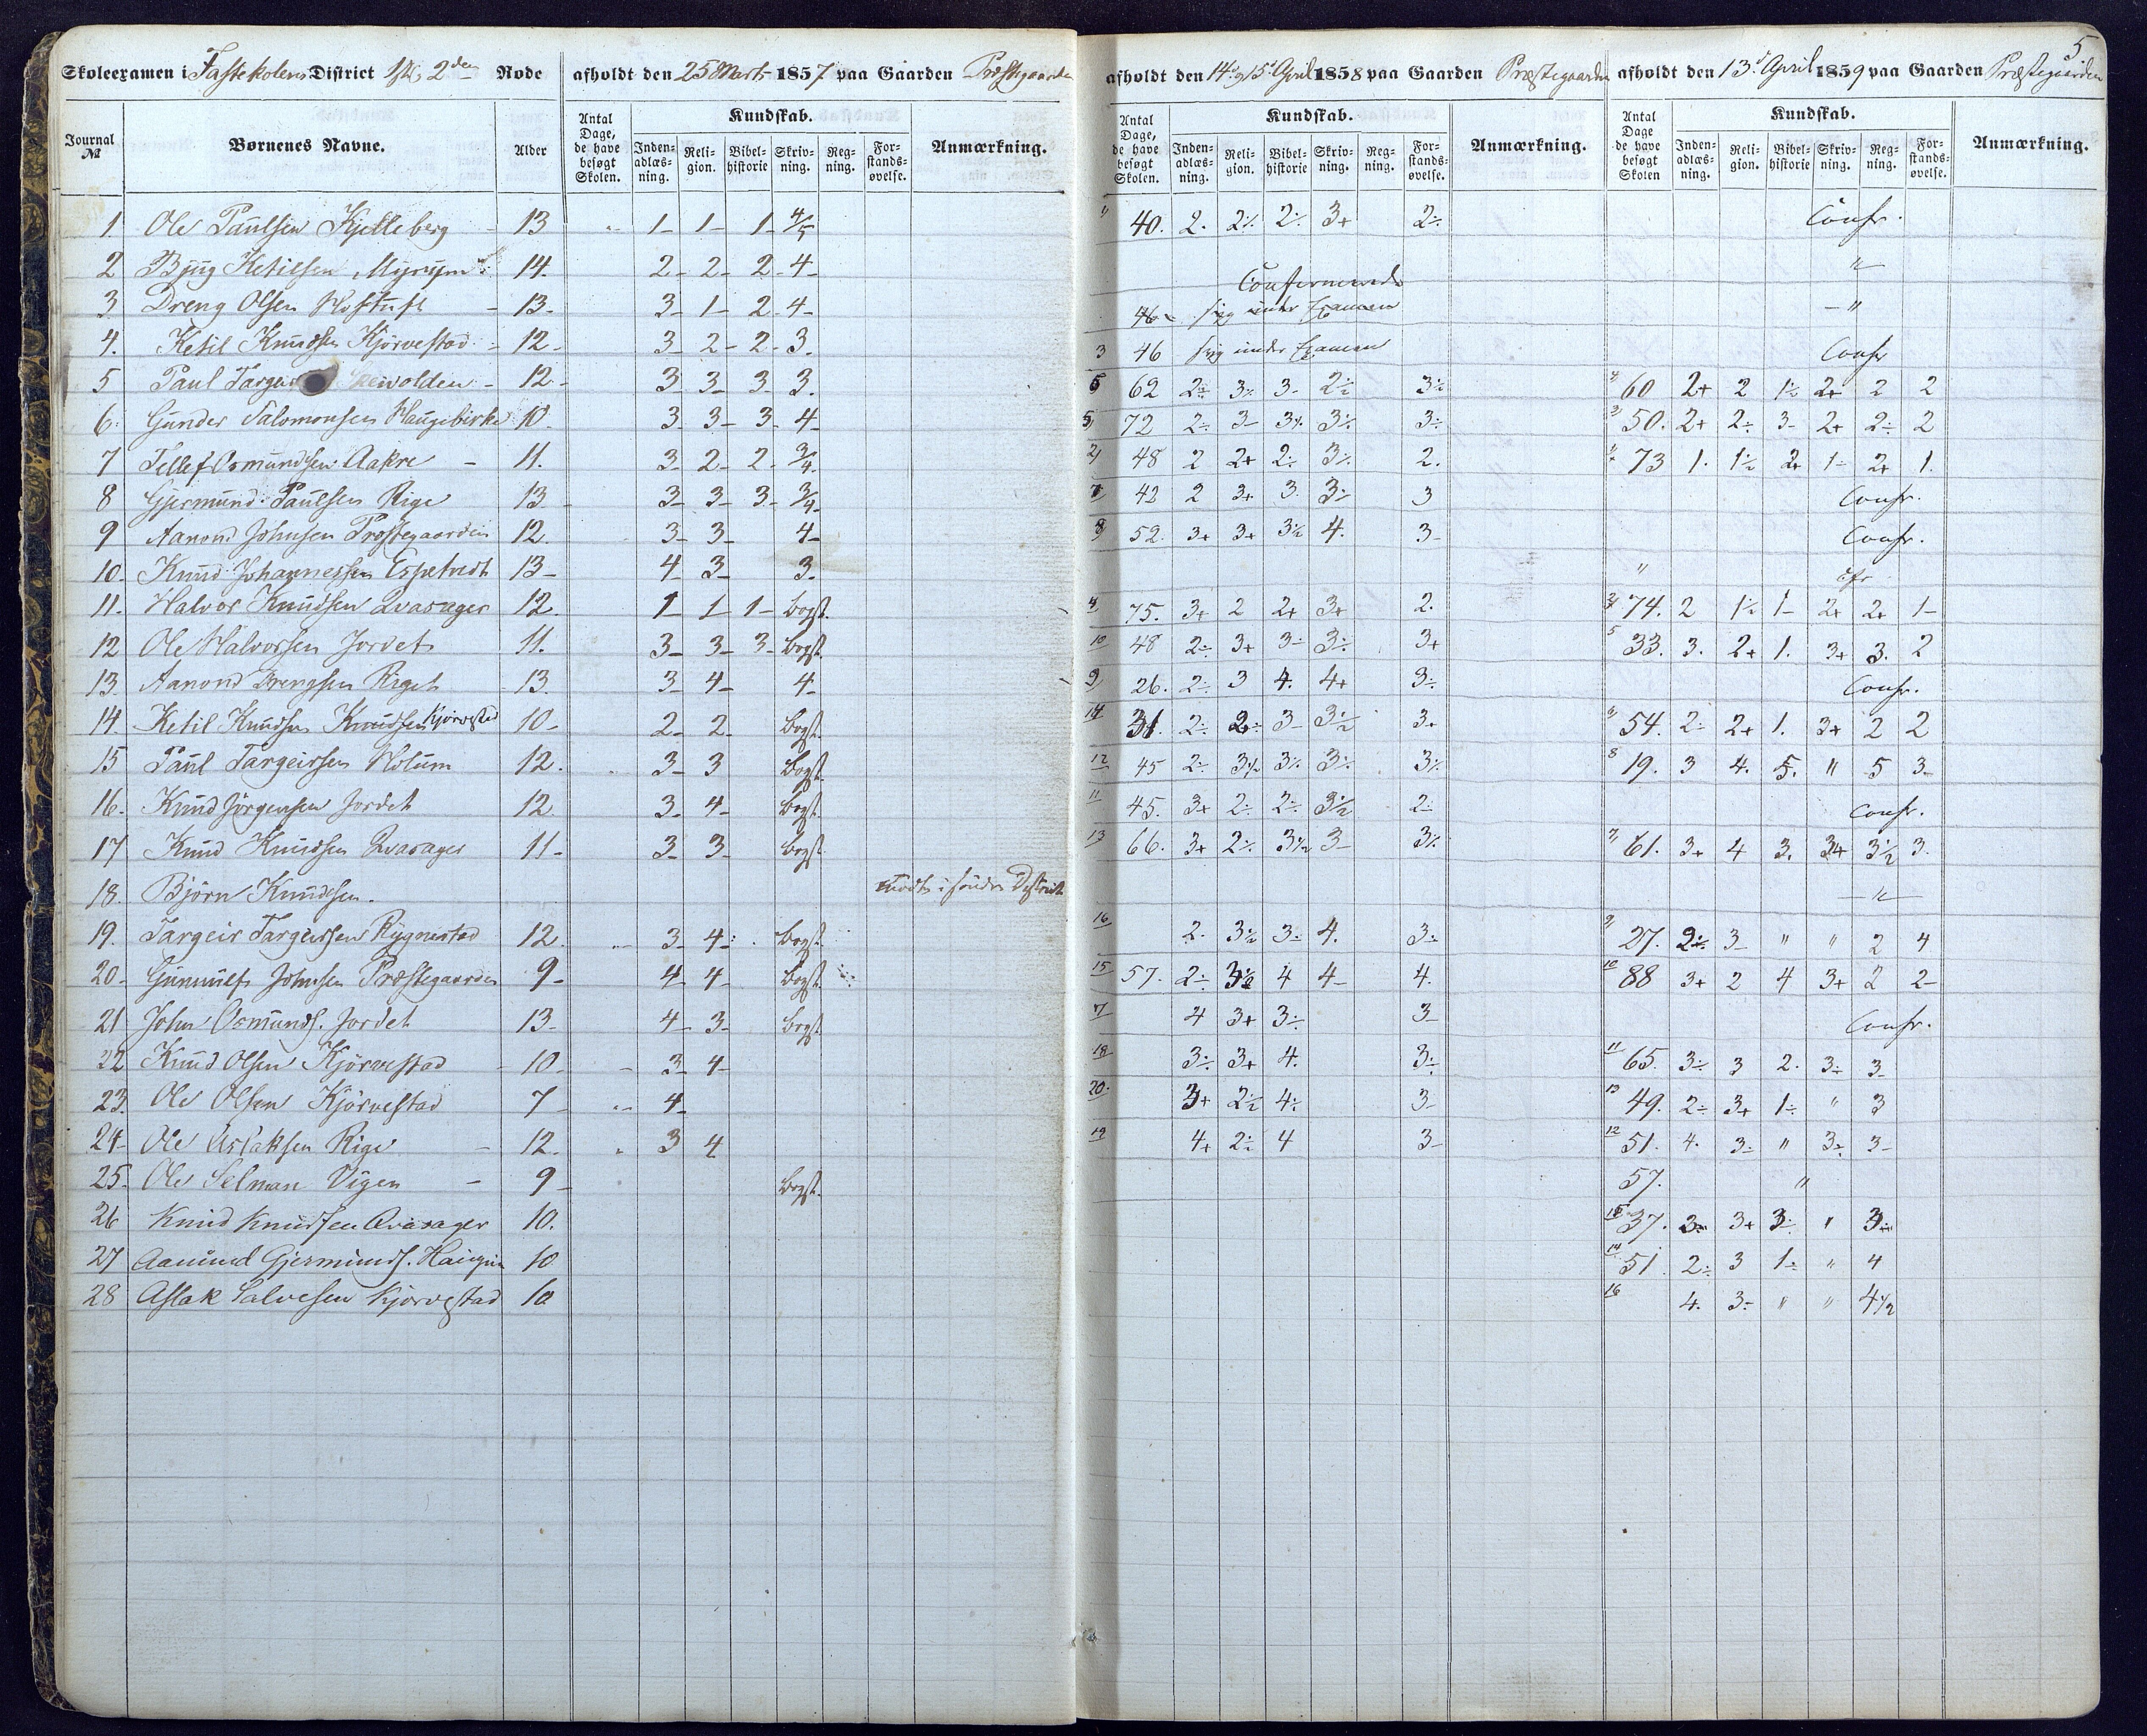 5
Skoleexamen i Fasteskolens District 1ste, 2den Rode afholdt den 25 Marts 1857 paa Gaarden Præstegaarden afholdt den 14 og 15 April 1858 paa Gaarden Præstegaarden afholdt den 13 April 1859 paa Gaarden Præstegaarden
Journal № Børnenes Navne. Alder Antal Dage, de have besøgt Skolen. Kundskab. Indenadlæsning. Religion. Bibelhistorie Skrivning. Regning. Forstandsøvelse. Anmærkning. Antal Dage, de have besøgt Skolen. Kundskab. Indenadlæsning. Religion. Bibelhistorie Skrivning. Regning. Forstandsøvelse. Anmærkning. Antal Dage de have besøgt Skolen Kundskab. Indenadlæsning. Religion. Bibelhistorie Skrivning. Regning. Forstandsøvelse. Anmærkning.
1. Ole Paulsen Kjelleberg - 13 1- 1- 1- 4/5 " 40. 2. 2÷ 2÷ 3+ 2÷ Confr.
2 Bjug Ketilsen Myrum 14. 2- 2- 2- 4- Confirmerede "
3 Dreng Olsen - 13- 3- 1- 2- 4- 46 sig under Examen - "
4. Ketil Knudsen Kjörvestad - 12- 3- 2- 2- 3. 3 46 sig under Examen Confr
5 Paul - 12- 3 3- 3- 3. 6 62 2÷ 3÷ 3- 2÷ 3÷ 4 60 2+ 2 1÷ 2+ 2 2
6. Gunder Salomonsen Haugebirke 10- 3 3- 3- 4- 5 72 2÷ 3- 3÷ 3÷ 3÷ 3 50. 2+ 2÷ 3- 2+ 2÷ 2
7 Tellef Osmundsen Aakre - 11. 3- 2- 2- 3/4- 2 48 2 2+ 2÷ 3÷ 2. 73 1. 1÷ 2+ 1- 2+ 1.
8 Gjermund Paulsen Rige 13- 3- 3- 3- 3/4- 7 42 2 3+ 3. 3÷ 3 Confr.
9 Aanond Johnsen Præstegaarden 12. 3- 3- 4- 8 52. 3+ 3+ 3÷ 4. 3- Confr.
10- Knud Johannessen Espetvedt 13- 4- 3- 3- " Cfr
11. Halvor Knudsen Qvasager 12. 1- 1- 1- bogst. 4 75. 3+ 2 2+ 3+ 2. 74. 2 1÷ 1- 2+ 2+ 1-
12 Ole Halvorsen Jordet 11. 3- 3- 3- bogst. 10 48 2÷ 3+ 3÷ 3÷ 3+ 5 33. 3. 2+ 1. 3+ 3. 2
13. Aanond Drengsen Riget 13. 3- 4- 4- 9 26. 2÷ 3 4. 4+ 3÷ Confr.
14. Ketil Knudsen Knudsen Kjörvestad 10- 2- 2- bogst. 14 31. 2÷ 2÷ 3- 3÷ 3+ 6 54. 2÷ 2+ 1. 3+ 2 2
15 Paul Targeirsen Holum 12. 3- 3 bogst. 12 45 2÷ 3÷ 3÷ 3÷ 3÷ 8 19. 3 4. 5. " 5 3-
16. Knud Jörgensen Jordet 12 3- 4- bogst. 11 45. 3+ 2÷ 2÷ 3÷ 2÷ Confr.
17 Knud Knudsen Qvasager 11- 3- 3- bogst. 13 66. 3+ 2÷ 3½ 3- 3÷ 7 61. 3+ 4 3. 3+ 3½ 3.
18. Björn Knudsen. i söndre District - " -
19. Targeir Targeirsen Rygnestad 12. 3- 4- bogst. 16 2. 3½ 3÷ 4. 3÷ 9 27. 2÷ 3- " " 2 4
20- Gunnulf Johnsen Præstegaarden 9- 4- 4- bogst. 15 57. 2÷ 3½ 4 4- 4. 10 88 3+ 2 4 3+ 2 2-
21 John Osmunds. Jordet 13- 4- 3- bogst. 17 4 3+ 3÷ 3- Confr.
22 Knud Olsen Kjörvestad - 10- 3- 4- 18 3÷ 3+ 4. 3÷ 11 65. 3÷ 3 2. 3÷ 3-
23. Ole Olsen Kjörvestad 7- 4- 20. 3+ 2½ 4÷ 3- 13 49. 2÷ 3+ 1÷ " 3
24- Ole Aslaksen Rige - 12. 3 4 19 4+ 2÷ 4 3- 12 51. 4. 3÷ " 3÷ 3-
25. Ole Selman Vigen - 9- bogst. 57. "
26 Knud Knudsen Qvasager 10. 15 37. 3÷ 3+ 3÷ " 3÷
27 Aanund Gjermunds. 10 14 51. 2÷ 3 1÷ " 4
28 Aslak Salvesen Kjörvestad 10 16 4. 3÷ " " 4½